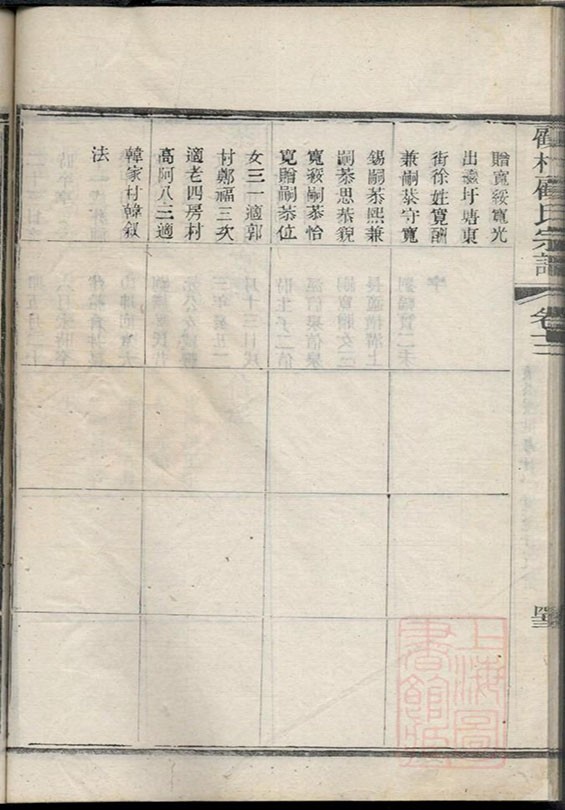 贈寬綏寬光
出瀛圩塘東
街徐姓寬酬
兼嗣恭守寬
錫嗣恭熙兼
嗣恭思恭貌
寬綏嗣恭怡
寬贈嗣恭位
女三一適郭
村鄭福三次
適老四房村
高阿八三適
韓家村韓叙
法
村顧氏宗譜
卷十二
上海圖書館藏